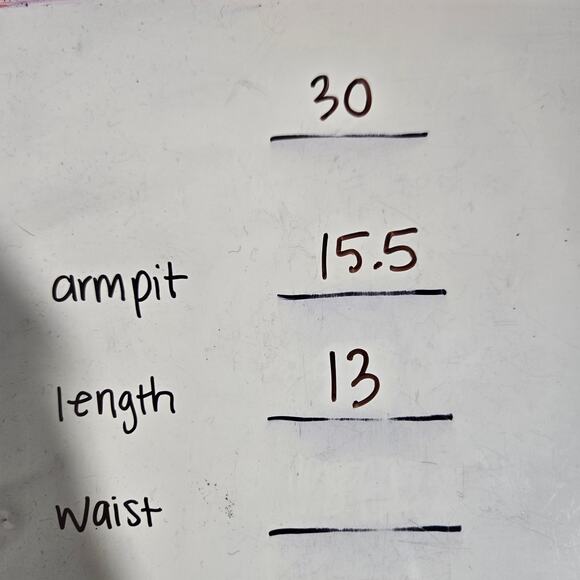 30
armpit 15.5
length 13
waist